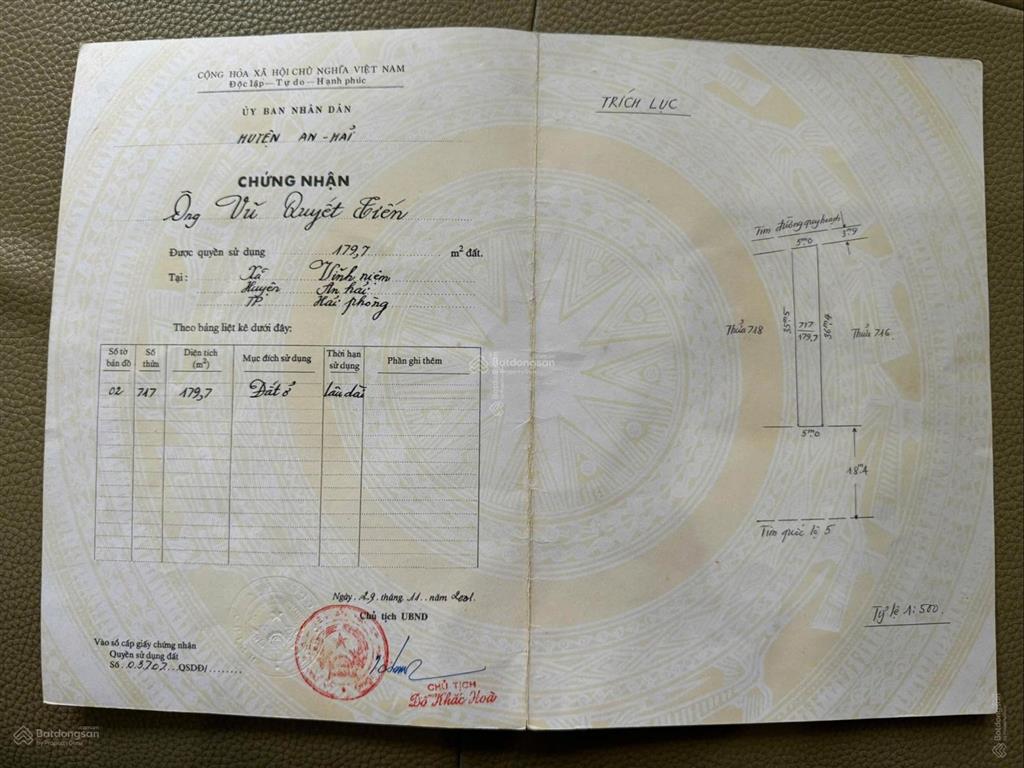 CỘNG HÒA XÃ HỘI CHỦ NGHĨA VIỆT NAM
Độc lập — Tự do — Hạnh phúc
ỦY BAN NHÂN DÂN
HUYỆN AN - HẢI
CHỨNG NHẬN
Ông Vũ Quyết Tiến
Được quyền sử dụng 179,7 m² đất.
Tại: Xã Vĩnh niệm
Huyện An hải
TP Hải phòng
Theo bảng liệt kê dưới đây:
Số tờ bản đồ Số thửa Diện tích (m²) Mục đích sử dụng Thời hạn sử dụng Phần ghi thêm
02 717 179,7 Đất ở lâu dài
Ngày 29 tháng 11 năm 2001.
Chủ tịch UBND
Vào sổ cấp giấy chứng nhận
Quyền sử dụng đất
Số 03707 QSDĐ/
CHỦ TỊCH
Đỗ Khắc Hoà
TRÍCH LỤC
Tim đường quy hoạch
3m9
5m0
Thửa 718
35m5
717
179,7
36m4
Thửa 716
5m0
18m4
Tim quốc lộ 5
Tỷ lệ 1:500.
Batdongsan
Batdongsan
by PropertyGuru
Batdongsan